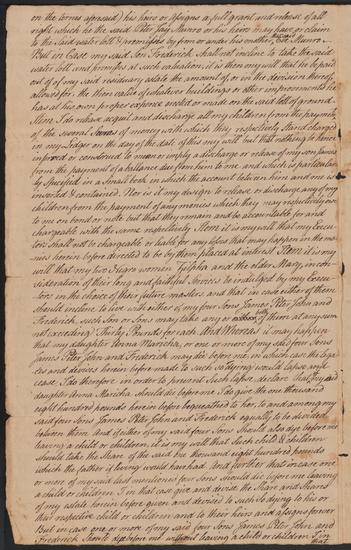 on the terms aforesaid) his heirs or Assigns a full grant and release of all
right which he the said Peter Jay Munro or his heirs may have or claim
to the said water lott & premises by from or under his mother, Eve Munro.
But in Case my said Son Frederick shall not incline to take the said
water lott and premises at such valuation, it is then my will that he be paid
out of my said residuary estate the amount of, or in the devision thereof
allowed for the then value of whatever buildings or other improvements he
has at his own proper expence erected or made on the said lott of ground.
Item I do release acquit and discharge all my children from the payment
of the several Sums of money with which they respectively stand charged
in my Ledger on the day of the date of this my will, but that nothing is herein
or construed to mean or imply a discharge or release of my son James
from the payment of a ballance due from him to me and which is particular
ly specified in a Small book in which the account between him and me is
inserted & contained. Nor is it my design to release or discharge any of my
children from the payment of any monies which they may respectively owe
to me on bond or note but that they remain and be accountable for and
chargeable with the same respectively Item it is my will that my Execu
tors shall not be chargeable or liable for any losses that may happen in the mo
nies herein before directed to be by them placed at interest Item it is my
will that my two Negro women Zylpha and the elder Mary, in con
sideration of their long and faithful Services be indulged by my Execu
tors in the choice of their future masters, and that in case either of them
should incline to live with either of my four Sons James Peter John and
Frederick, such son or Sons may take any or either of them at any sum
not exceeding Thirty Pounds for each And Whereas it may happen
that my daughter Anna Maricka, or one or more of my said four Sons
James Peter John and Frederick may die before me, in which case the lega
cies and devises herein before made to such so dying would lapse and
cease, I do therefore in order to prevent Such lapse, declare that if my said
daughter Anna Maricka should die before me, I do give the one thousand
eight hundred pounds herein before bequeathed to her, to and among my
said four Sons James Peter John and Frederick equally to be divided
between them. And if either of my said four Sons Should also dye before me
having a child or children, it is my will that Such child or children
should take the Share of the said one thousand eight hundred pounds
which the father if living would have had. And further that in case one
or more of my said last mentioned four Sons should die before me leaving
a child or children I in that case give and devise the Share and Shares
of my estate herein before given and devised to such So dying to his or
their respective child or children and to their heirs and assigns forever
But in case one or more of my said four Sons James Peter John, and
Frederick Should die before me without leaving a child or children I in
that